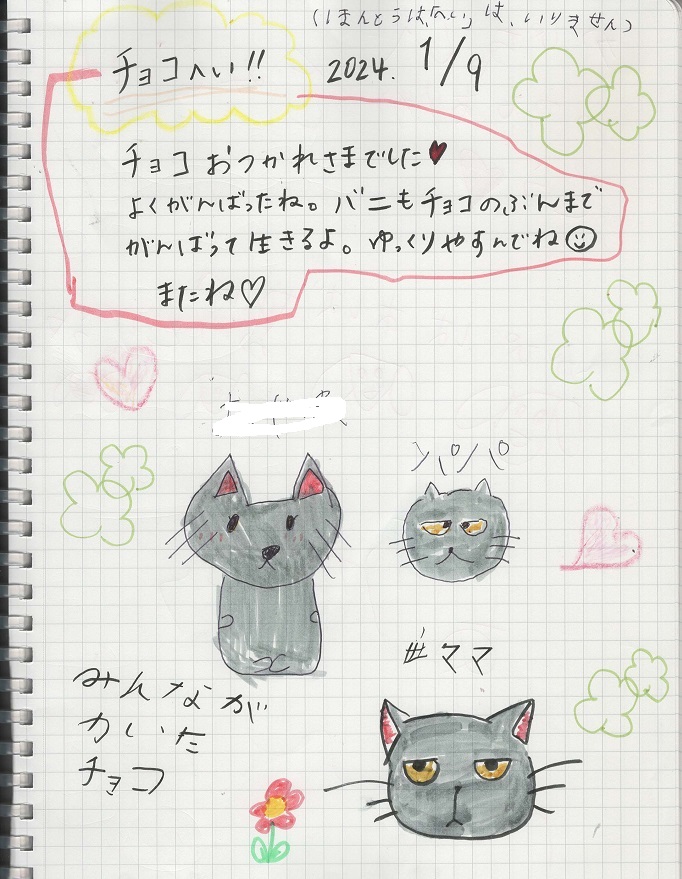 (ほんとうは、「へい」は、いりません)
チョコへい!! 2024. 1/9
チョコ おつかれさまでした♥
よくがんばったね。バニもチョコのぶんまで
がんばって生きるよ。ゆっくりやすんでね☺
またね♡
パパ
ママ
みんなが
かいた
チョコ